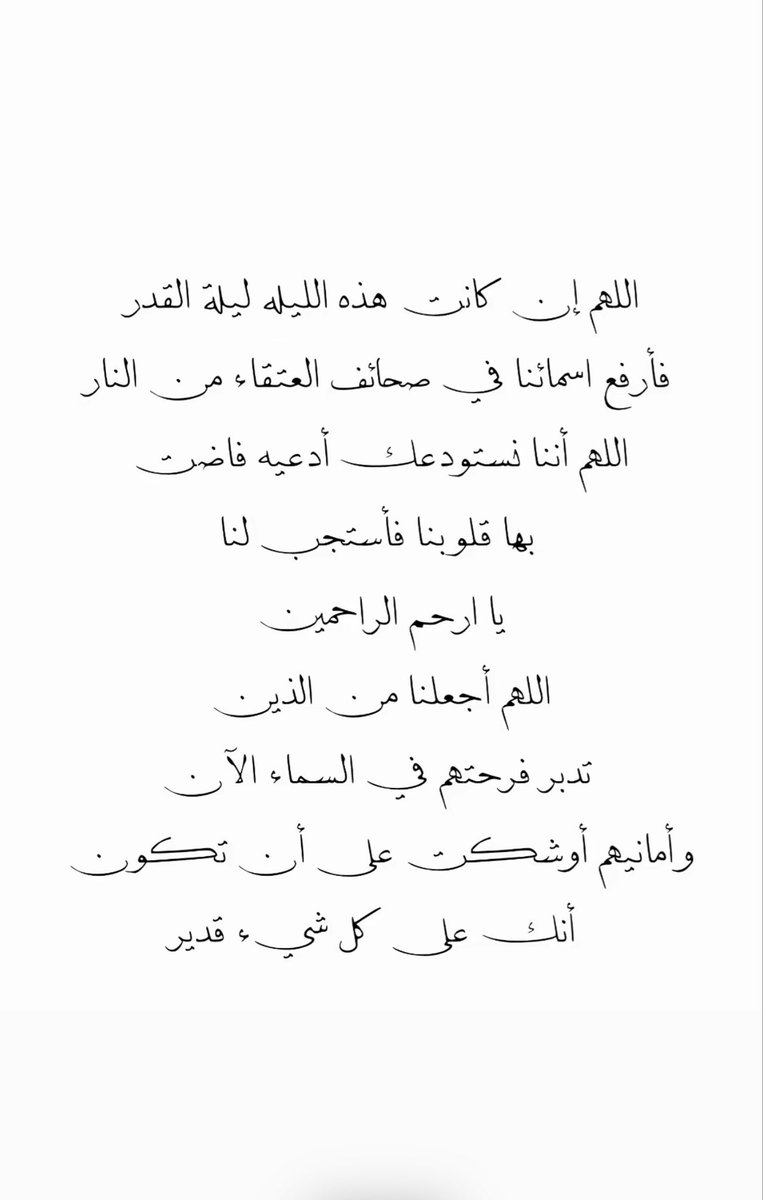 اللهم إن كانت هذه الليله ليلة القدر
فأرفع اسمائنا في صحائف العتقاء من النار
اللهم أننا نستودعك أدعيه فاضت
بها قلوبنا فأستجب لنا
يا ارحم الراحمين
اللهم أجعلنا من الذين
تدبر فرحتهم في السماء الآن
وأمانيهم أوشكت على أن تكون
أنك على كل شيء قدير